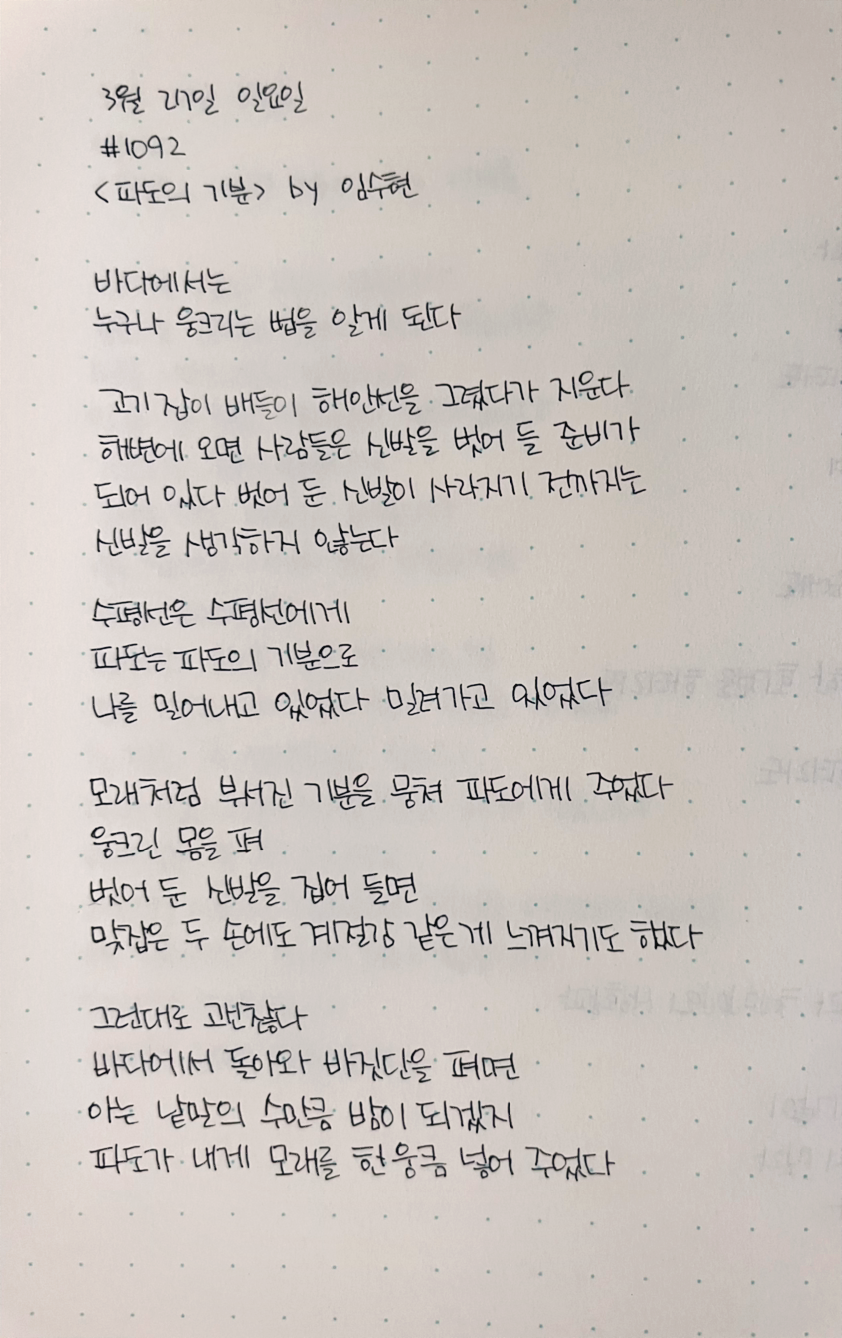 3월 27일 일요일
#1092
<파도의 기분> by 임수현
바다에서는
누구나 웅크리는 법을 알게 된다
고기잡이 배들이 해안선을 그렸다가 지운다
해변에 오면 사람들은 신발을 벗어 들 준비가
되어 있다 벗어 둔 신발이 사라지기 전까지는
신발을 생각하지 않는다
수평선은 수평선에게
파도는 파도의 기분으로
나를 밀어내고 있었다 밀려가고 있었다
모래처럼 부서진 기분을 뭉쳐 파도에게 주었다
웅크린 몸을 펴
벗어 둔 신발을 집어 들면
맞잡은 두 손에도 계절감 같은게 느껴지기도 했다
그런대로 괜찮다
바다에서 돌아와 바짓단을 펴면
아는 낱말의 수만큼 밤이 되겠지
파도가 내게 모래를 한 웅큼 넣어 주었다